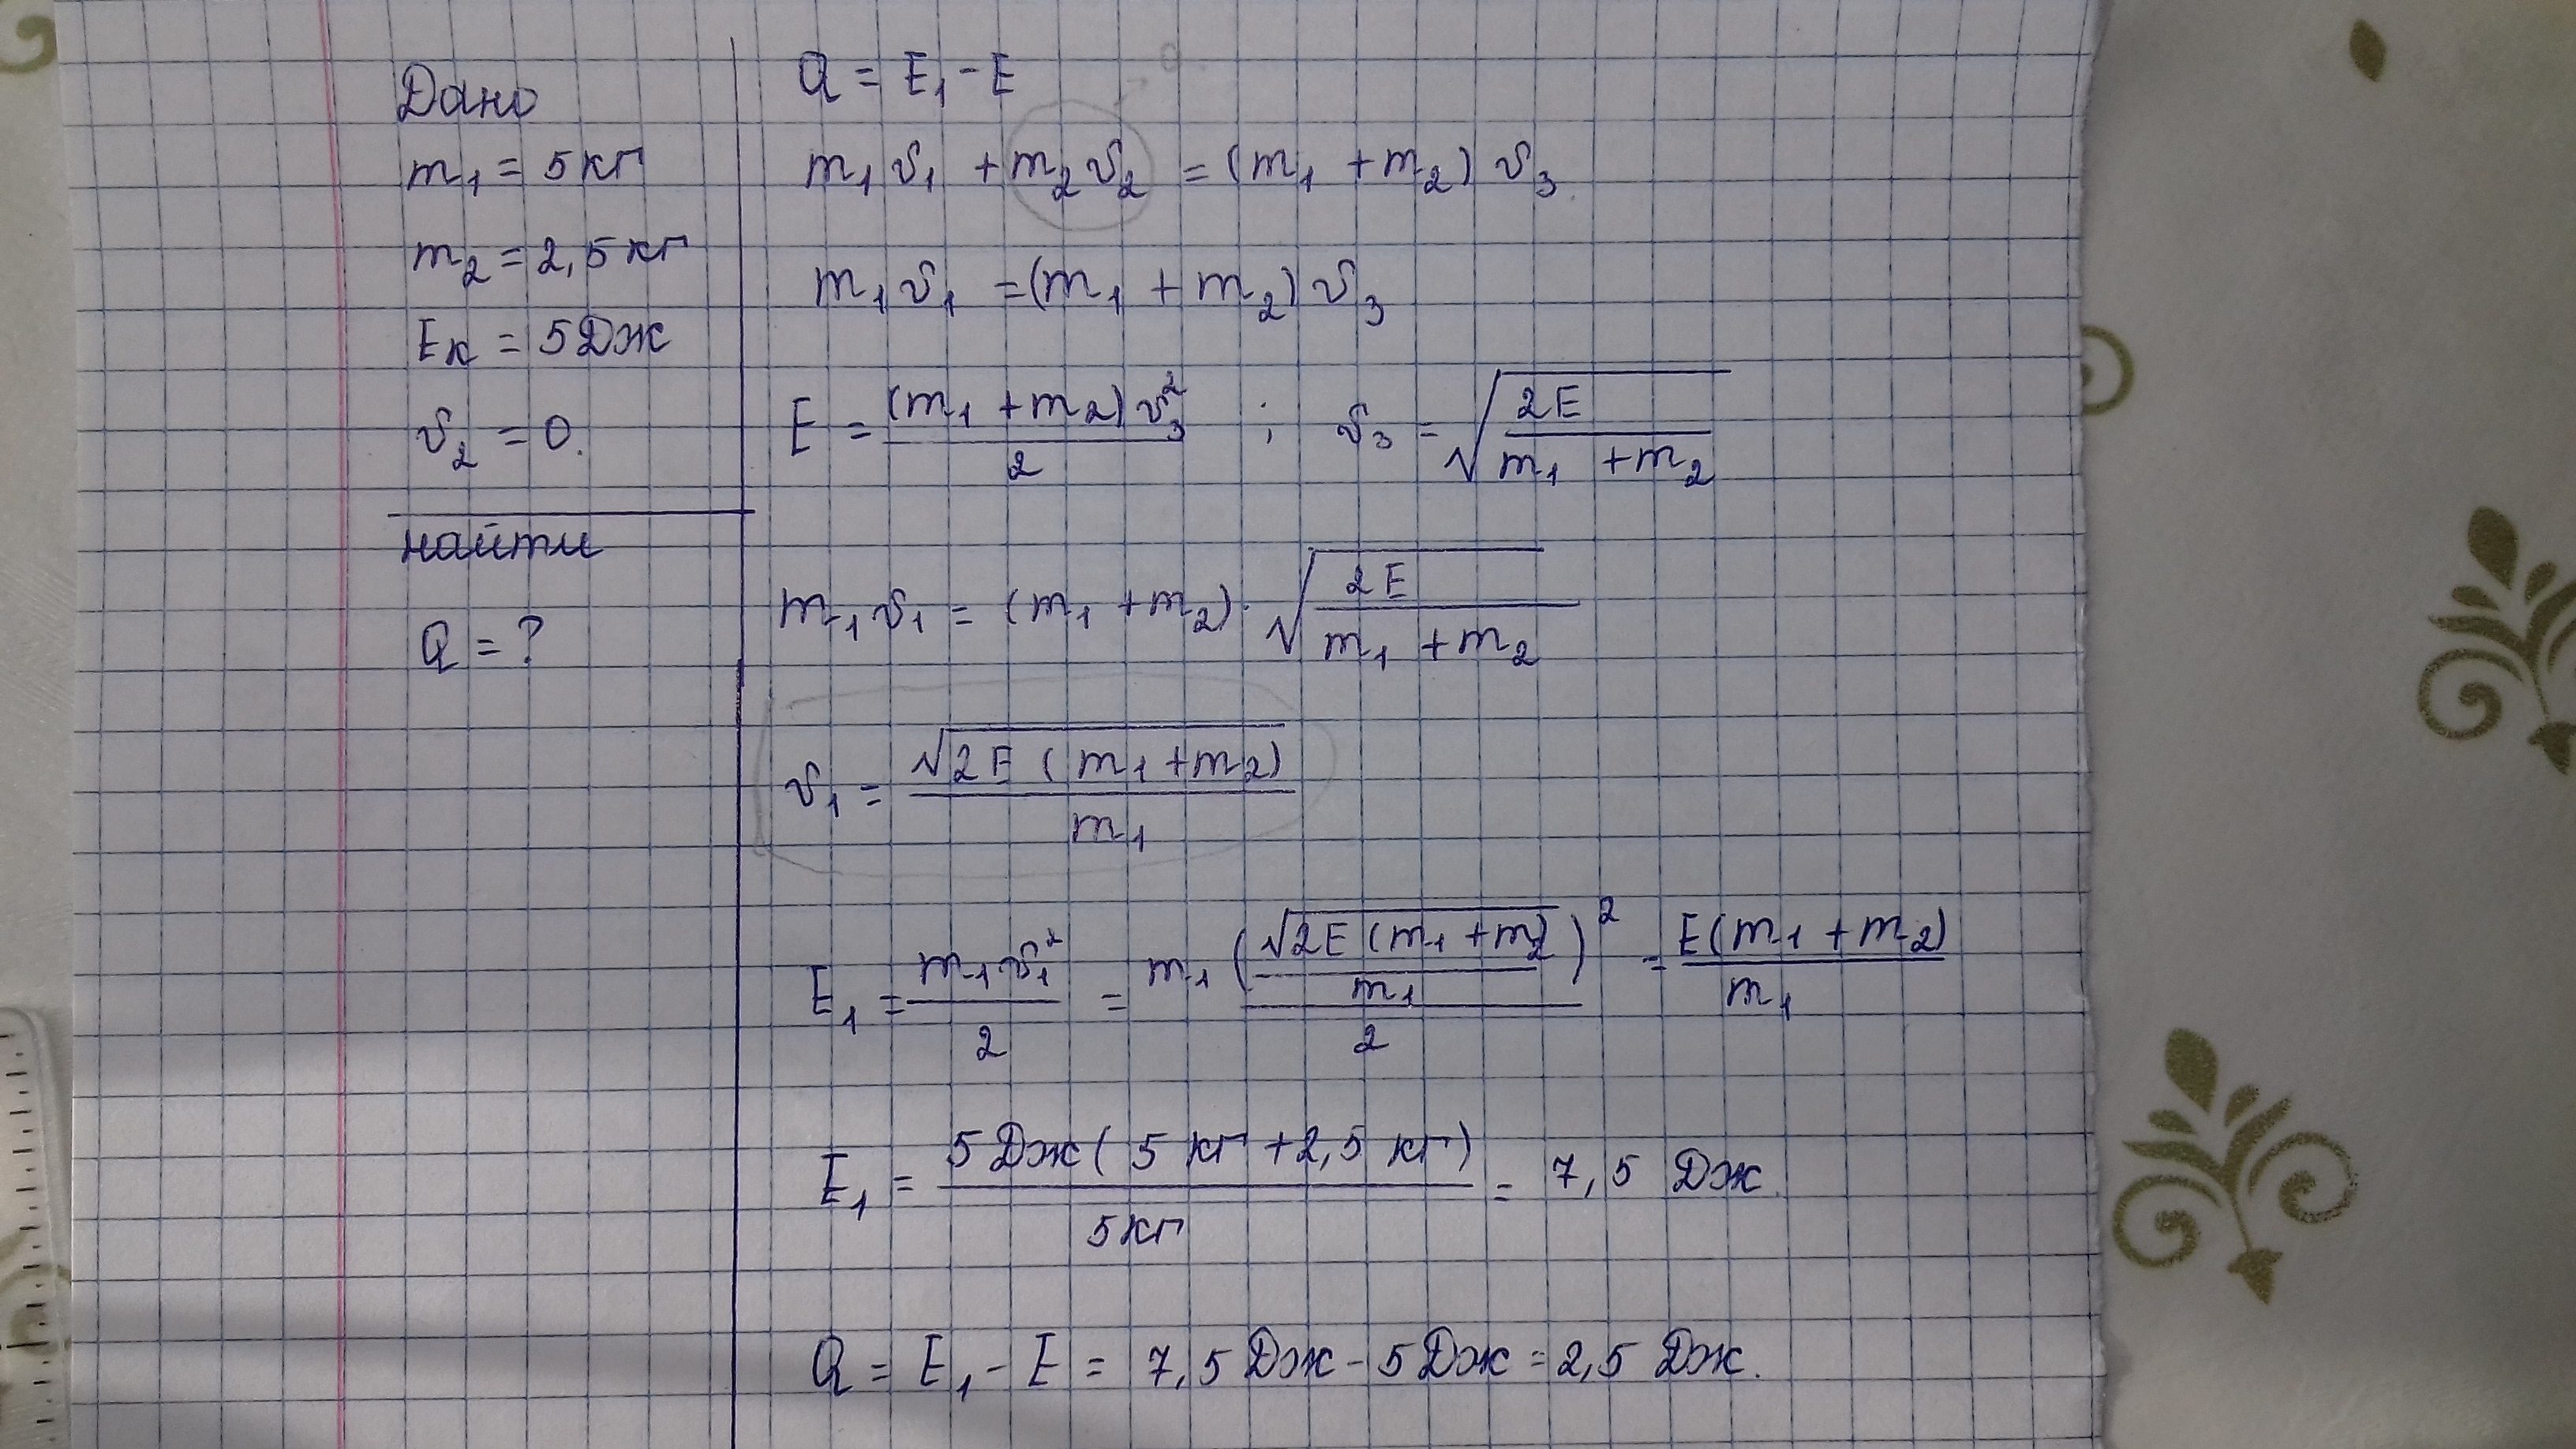 Дано
m₁ = 5 кг
m₂ = 2,5 кг
Eк = 5 Дж
v₂ = 0.
найти
Q = ?
Q = E₁ - E
0.
m₁v₁ + m₂v₂ = (m₁ + m₂) v₃.
m₁v₁ = (m₁ + m₂) v₃
E = (m₁ + m₂) v₃² / 2 ; v₃ = √(2E / (m₁ + m₂))
m₁v₁ = (m₁ + m₂) · √(2E / (m₁ + m₂))
v₁ = √(2E (m₁ + m₂)) / m₁
E₁ = m₁v₁² / 2 = m₁ (√(2E (m₁ + m₂)) / m₁)² / 2 = E(m₁ + m₂) / m₁
E₁ = 5 Дж ( 5 кг + 2,5 кг) / 5 кг = 7,5 Дж.
Q = E₁ - E = 7,5 Дж - 5 Дж = 2,5 Дж.